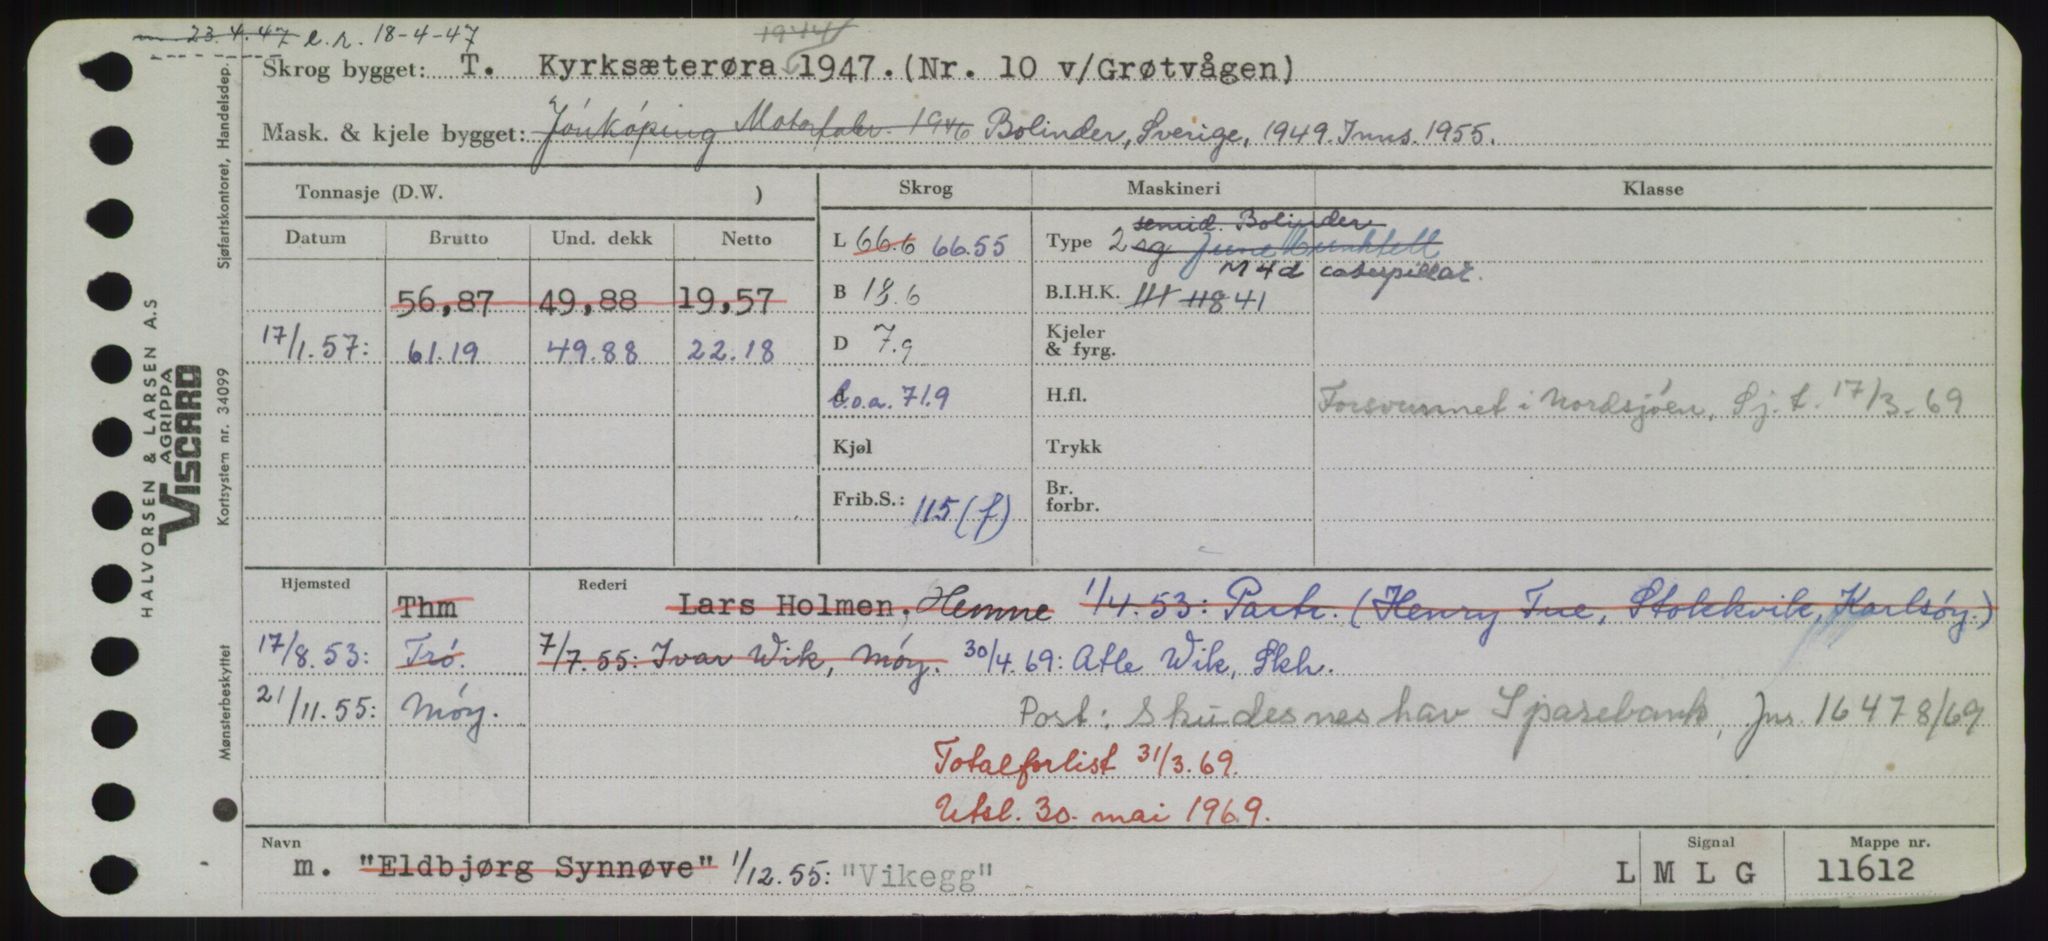 23.4.47 e.r. 18-4-47
1944
Skrog bygget: T. Kyrksæterøra 1947. (Nr. 10 v/Grøtvågen)
Mask. & kjele bygget: Jönköping Motorfabr. 1946 Bolinder, Sverige, 1949. Inns. 1955.
Tonnasje (D.W. ) Skrog Maskineri Klasse
Datum Brutto Und. dekk Netto
semid. Bolinder
L 66.6 66.55 Type 2 sg June Munktell
M 4d caterpillar.
56,87 49,88 19,57 B 18.6 B.I.H.K. 111 118 41
17/1.57: 61.19 49.88 22.18 D 7.9 Kjeler & fyrg.
d L.o.a. 71.9 H.fl. Forsvunnet i Nordsjøen, Sj.t. 17/3.69
Kjøl Trykk
Frib.S.: 115 (f) Br. forbr.
Hjemsted Rederi
Thm Lars Holmen, Hemne 1/4.53: Partr. (Henry Tue, Stokkvik, Karlsøy.)
17/8.53: Trö. 7/7.55: Ivar Wik, Möy. 30/4.69: Atle Wik, Skh.
21/11.55: Möy. Post: Skudesneshav Sparebank, Jnr 16478/69
Totalforlist 31/3.69.
Utsl. 30. mai 1969.
Navn Signal Mappe nr.
m. "Eldbjørg Synnøve" 1/12.55: "Vikegg" L M L G 11612
HALVORSEN & LARSEN A.S
AGRIPPA
VISCARD
Sjøfartskontoret, Handelsdep.
Kortsystem nr. 34099
Mønsterbeskyttet